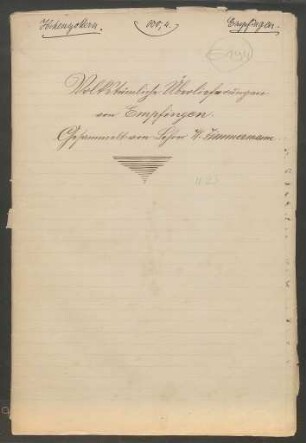 Hohenzollern. 105,4. Empfingen.
Volkstümliche Überlieferungen
von Empfingen.
Gesammelt von Lehrer H. Zimmermann